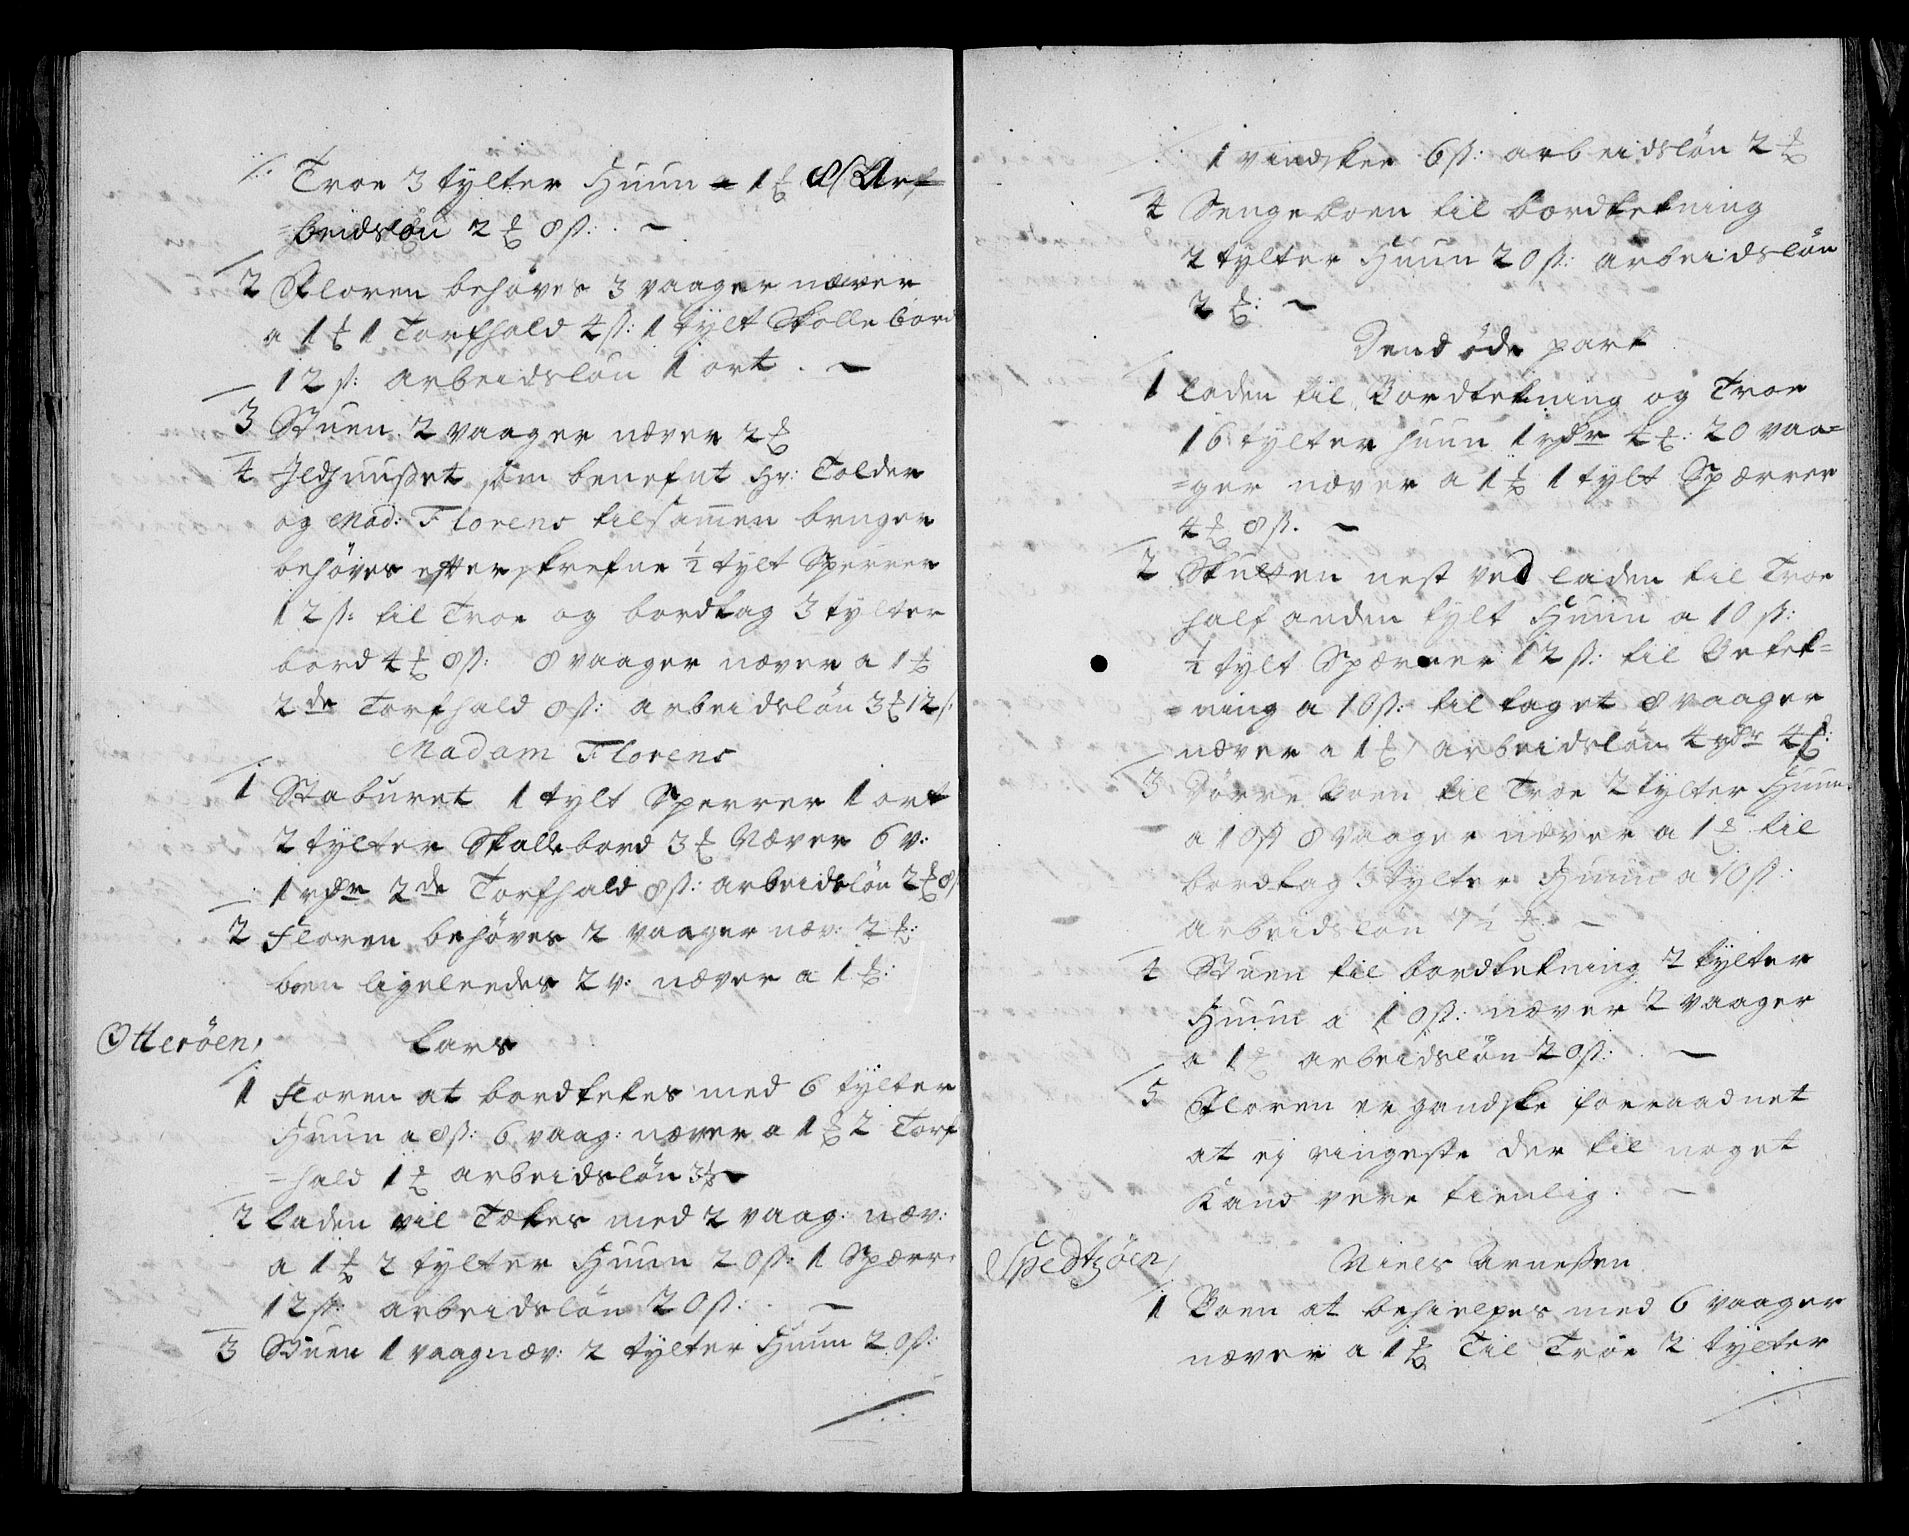 Troe 3 tylter Huun a 1 ℔ 8 ß Arf
=beidsløn 2 ℔ 8 ß: . ~
2 Floren behøves 3 vaager næver
a 1 ℔ 1 Torfhald 4 ß: 1 tylt Skolle bord
12 ß: arbeidsløn 1 ort . ~
3 Stuen 2 vaager næver 2 ℔
4 Ildhuußet som benefnt Hr: Tolder
og Mad: Florens tilsam̅en bruger
behøves efterskrefne ½ tylt Sperrer
12 ß: til Troe og bordtag 3 tylter
bord 4 ℔ 8 ß: 8 vaager næver a 1 ℔
2de Torfhald 8 ß: arbeidsløn 3 ℔ 12 ß
Madam Florens
1 Staburet 1 tylt Sperrer 1 ort
2 tylter Skallebord 3 ℔ Næver 6 v:
1 rdr 2de Torfhald 8 ß: arbeidsløn 2 ℔ 8 ß
2 Floren behøves 2 vaager næv: 2 ℔:
boen ligeleedes 2 v: næver a 1 ℔:
Otterøen, Lars
1 Floren at bordtekes med 6 tylter
Huun a 8 ß: 6 vaag: næver a 1 ℔ 2 Torf
=hald 1 ℔ arbeidsløn 3 ℔ ~
2 Laden vil Tækes med 2 vaag: næv:
a 1 ℔ 2 tylter Huun 20 ß: 1 Spærr:
12 ß: arbeidsløn 20 ß: . ~
3 Stuen 1 vaag næv: 2 tylter Huun 20 ß:
1 vindskee 6 ß: arbeidsløn 2 ℔
4 Sengeboen til bordtekning
2 tylter Huun 20 ß: arbeidsløn
2 ℔: ~
Dend øde part
1 Laden til Bordtekning og Troe
16 tylter huun 1 rdr 4 ℔: 20 vaa=
=ger næver a 1 ℔ 1 tylt Spærrer
4 ℔ 8 ß. ~
2 nest ved laden til Troe
half anden tylt Huun a 10 ß:
½ tylt Spærrer 12 ß: til Betek=
=ning a 10 ß: til taget 8 vaager
næver a 1 ℔ arbeidsløn 4 rdr 4 ℔:
3 Dørre Boen til Troe 2 tylter Huun
a 10 ß 8 vaager næver a 1 ℔ til
bordtag 3 tylter Huun a 10 ß:
arbeidsløn ℔: ~
4 Stuen til bordtekning 2 tylter
Huun a 10 ß: næver 2 vaager
a 1 ℔ arbeidsløn 20 ß: . ~
5 Floren er gandske forraadnet
at ej ringeste der til noget
Kand vere tienlig. ~
Niels Arneßen
1 Boen at behielpes med 6 vaager
næver a 1 ℔ Til Troe 2 tylter